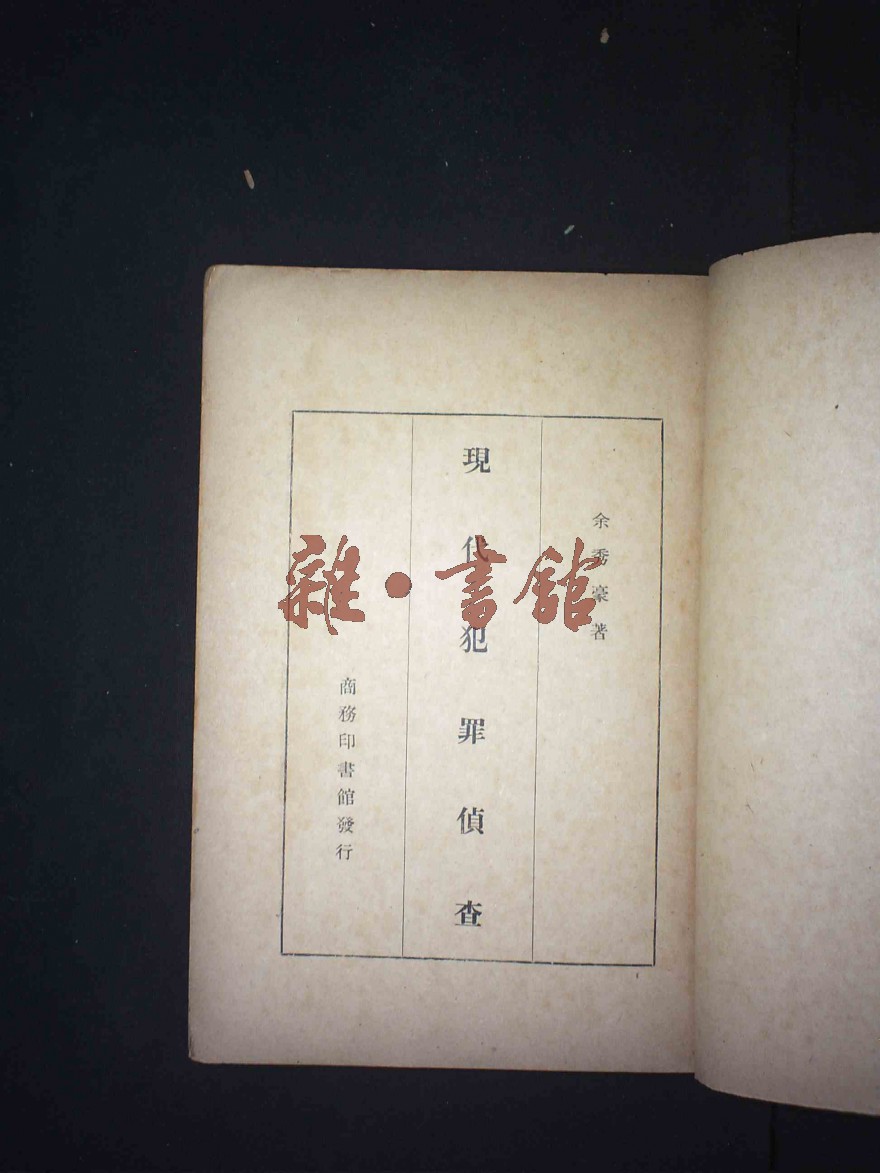 余秀豪著
現代犯罪偵查
商務印書館發行
雜·書館